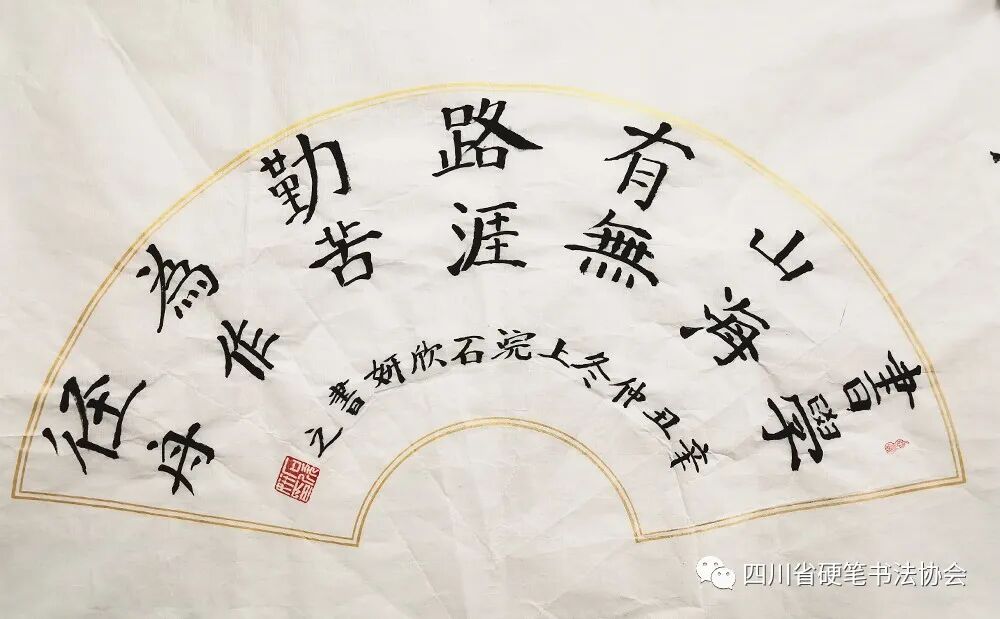 書山有路勤為径
學海無涯苦作舟
辛丑仲冬上浣石欣妍書之
四川省硬笔书法协会